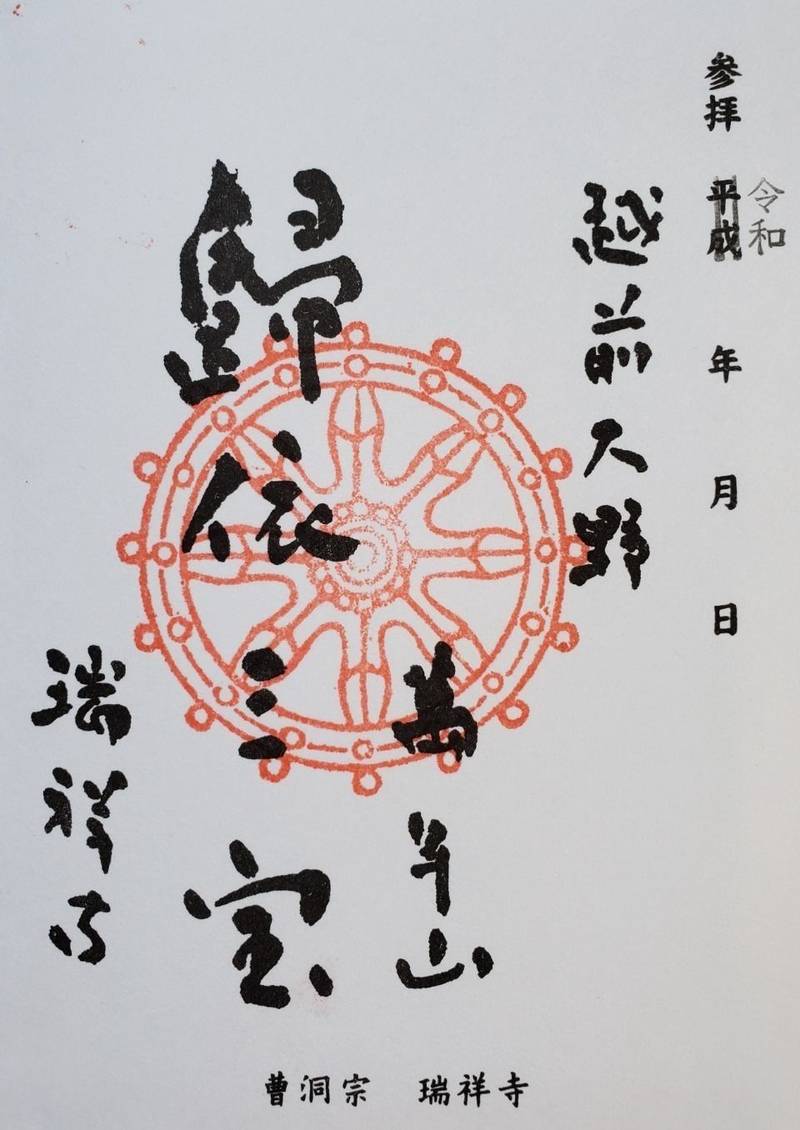 参拝 平成 年 月 日
令和
越前大野
萬年山
歸依三宝
瑞祥寺
曹洞宗 瑞祥寺